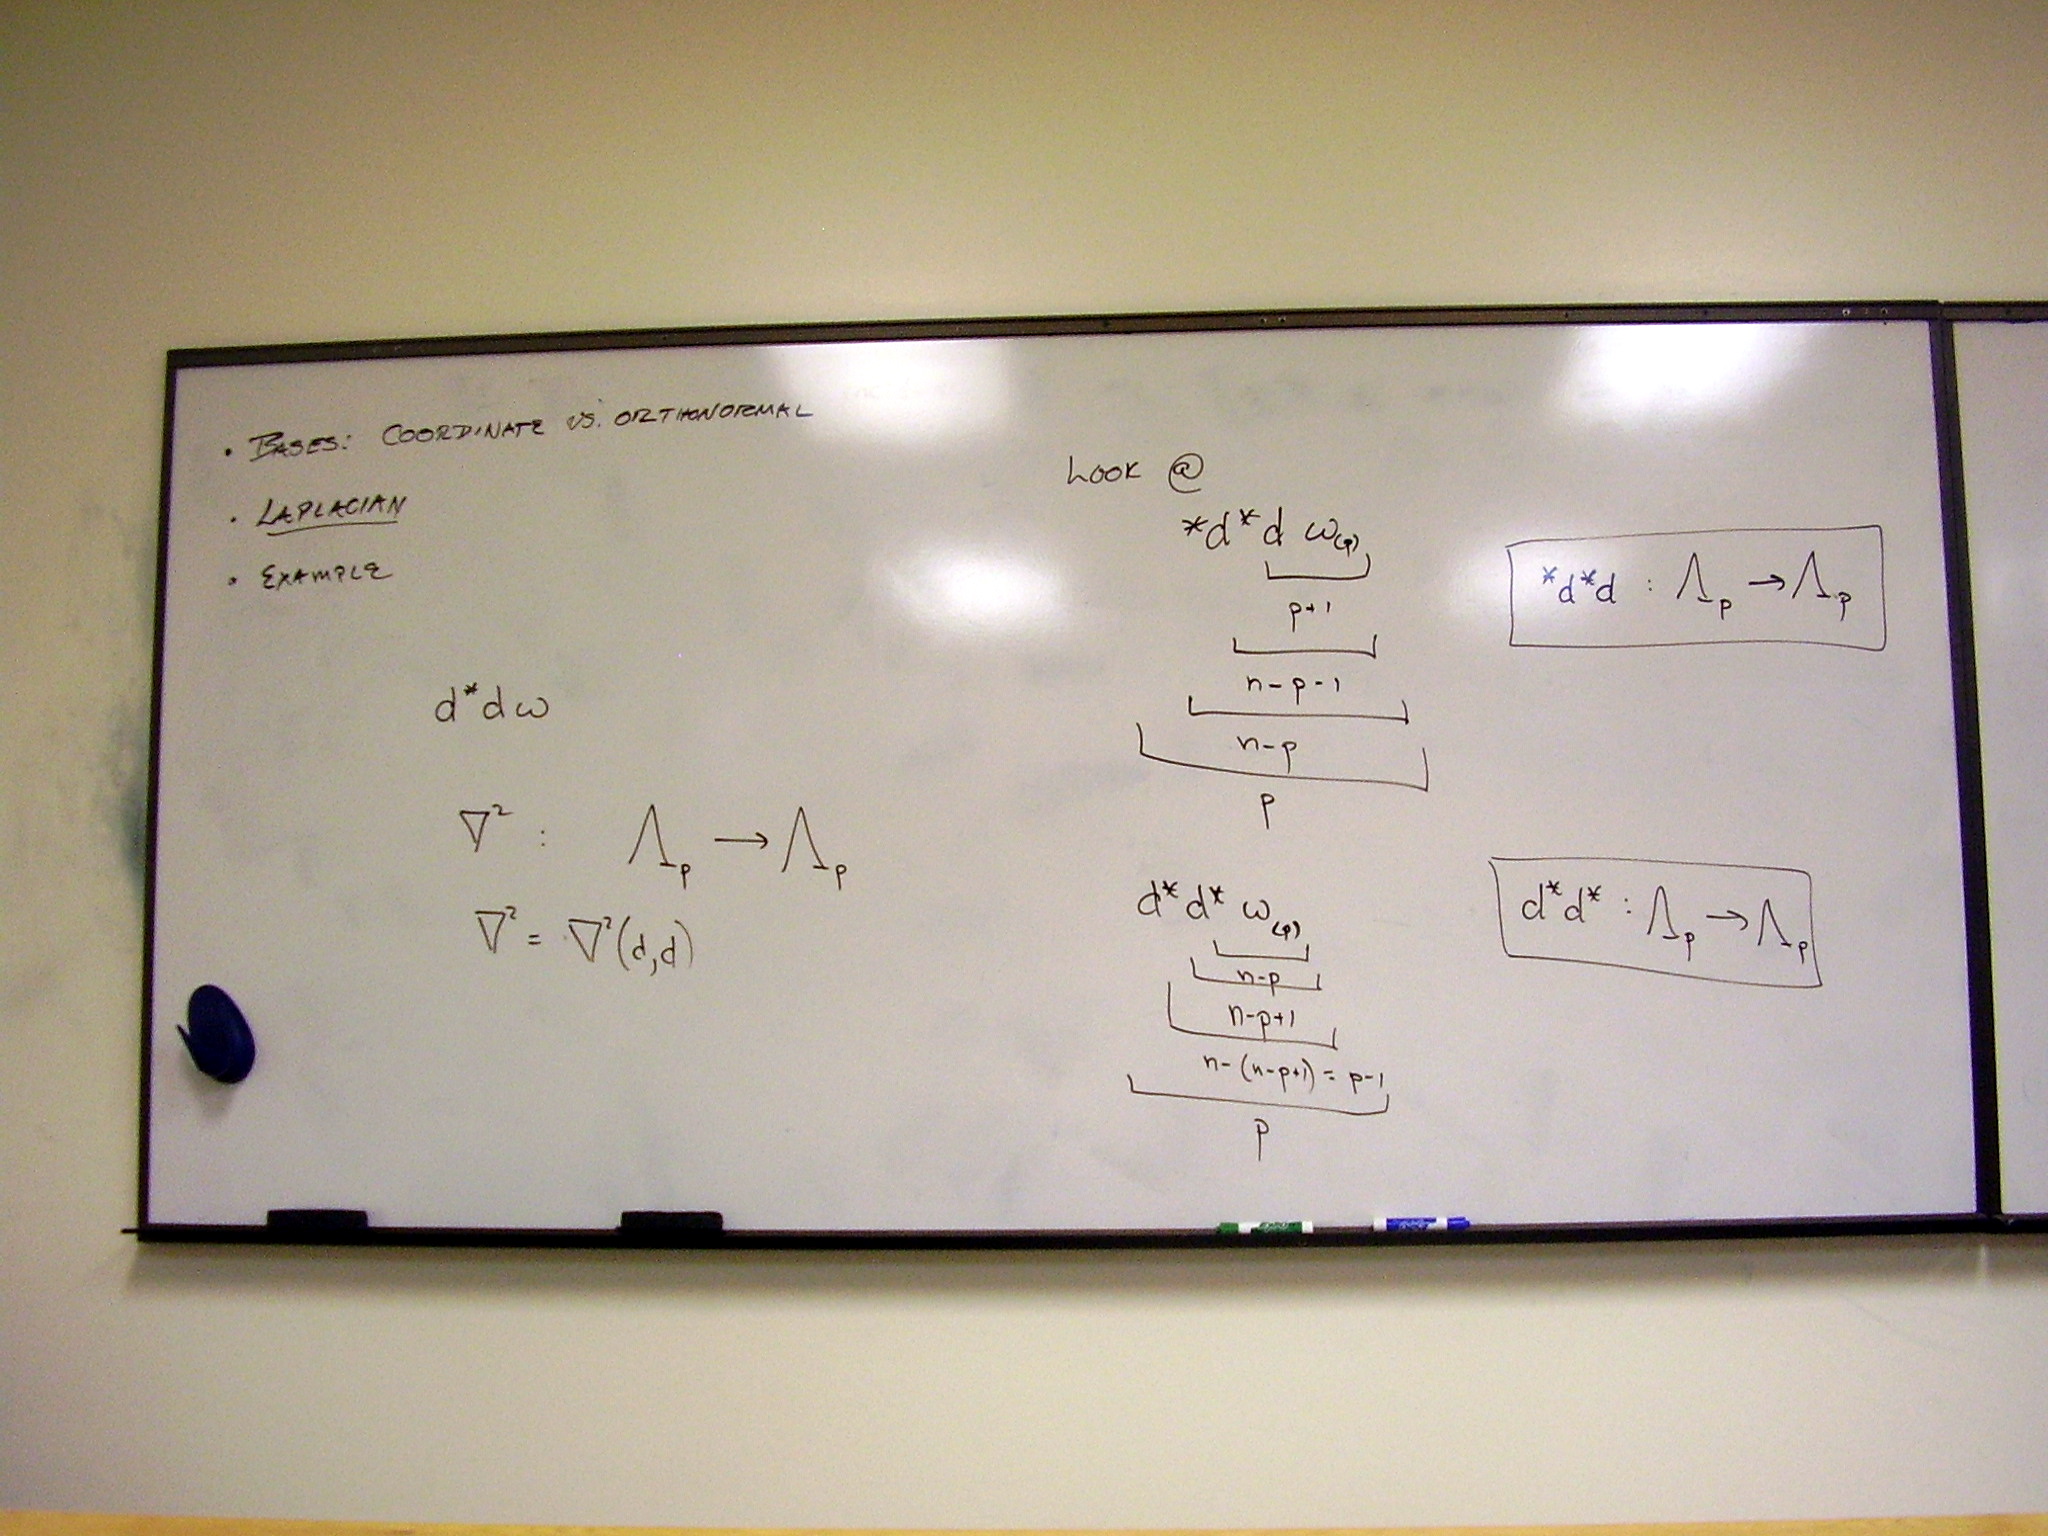 • BASES: COORDINATE VS. ORTHONORMAL
• LAPLACIAN
• EXAMPLE
d*dω
∇² : Λp → Λp
∇² = ∇²(d,d)
LOOK @
*d*d ω(p)
p+1
n-p-1
n-p
p
*d*d : Λp → Λp
d*d* ω(p)
n-p
n-p+1
n-(n-p+1) = p-1
p
d*d* : Λp → Λp